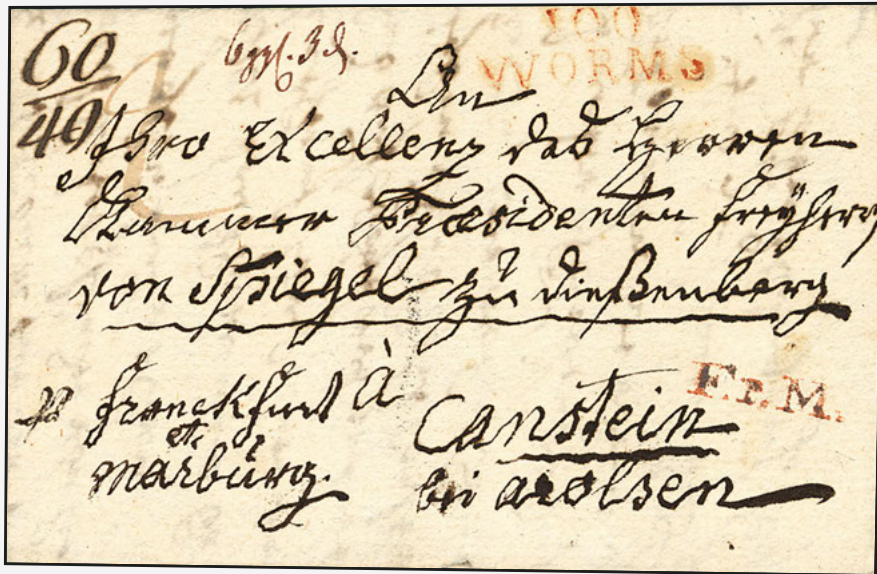 60
40
6 ggl. 3 d.
100
WORMS
An
Ihro Excellenz das Herren
Kammer Præsidenten Freÿherrn
von Spiegel zu dießenberg
à
Franckfurt
et
Marburg.
Canstein
bei arolsen
F.r.M.